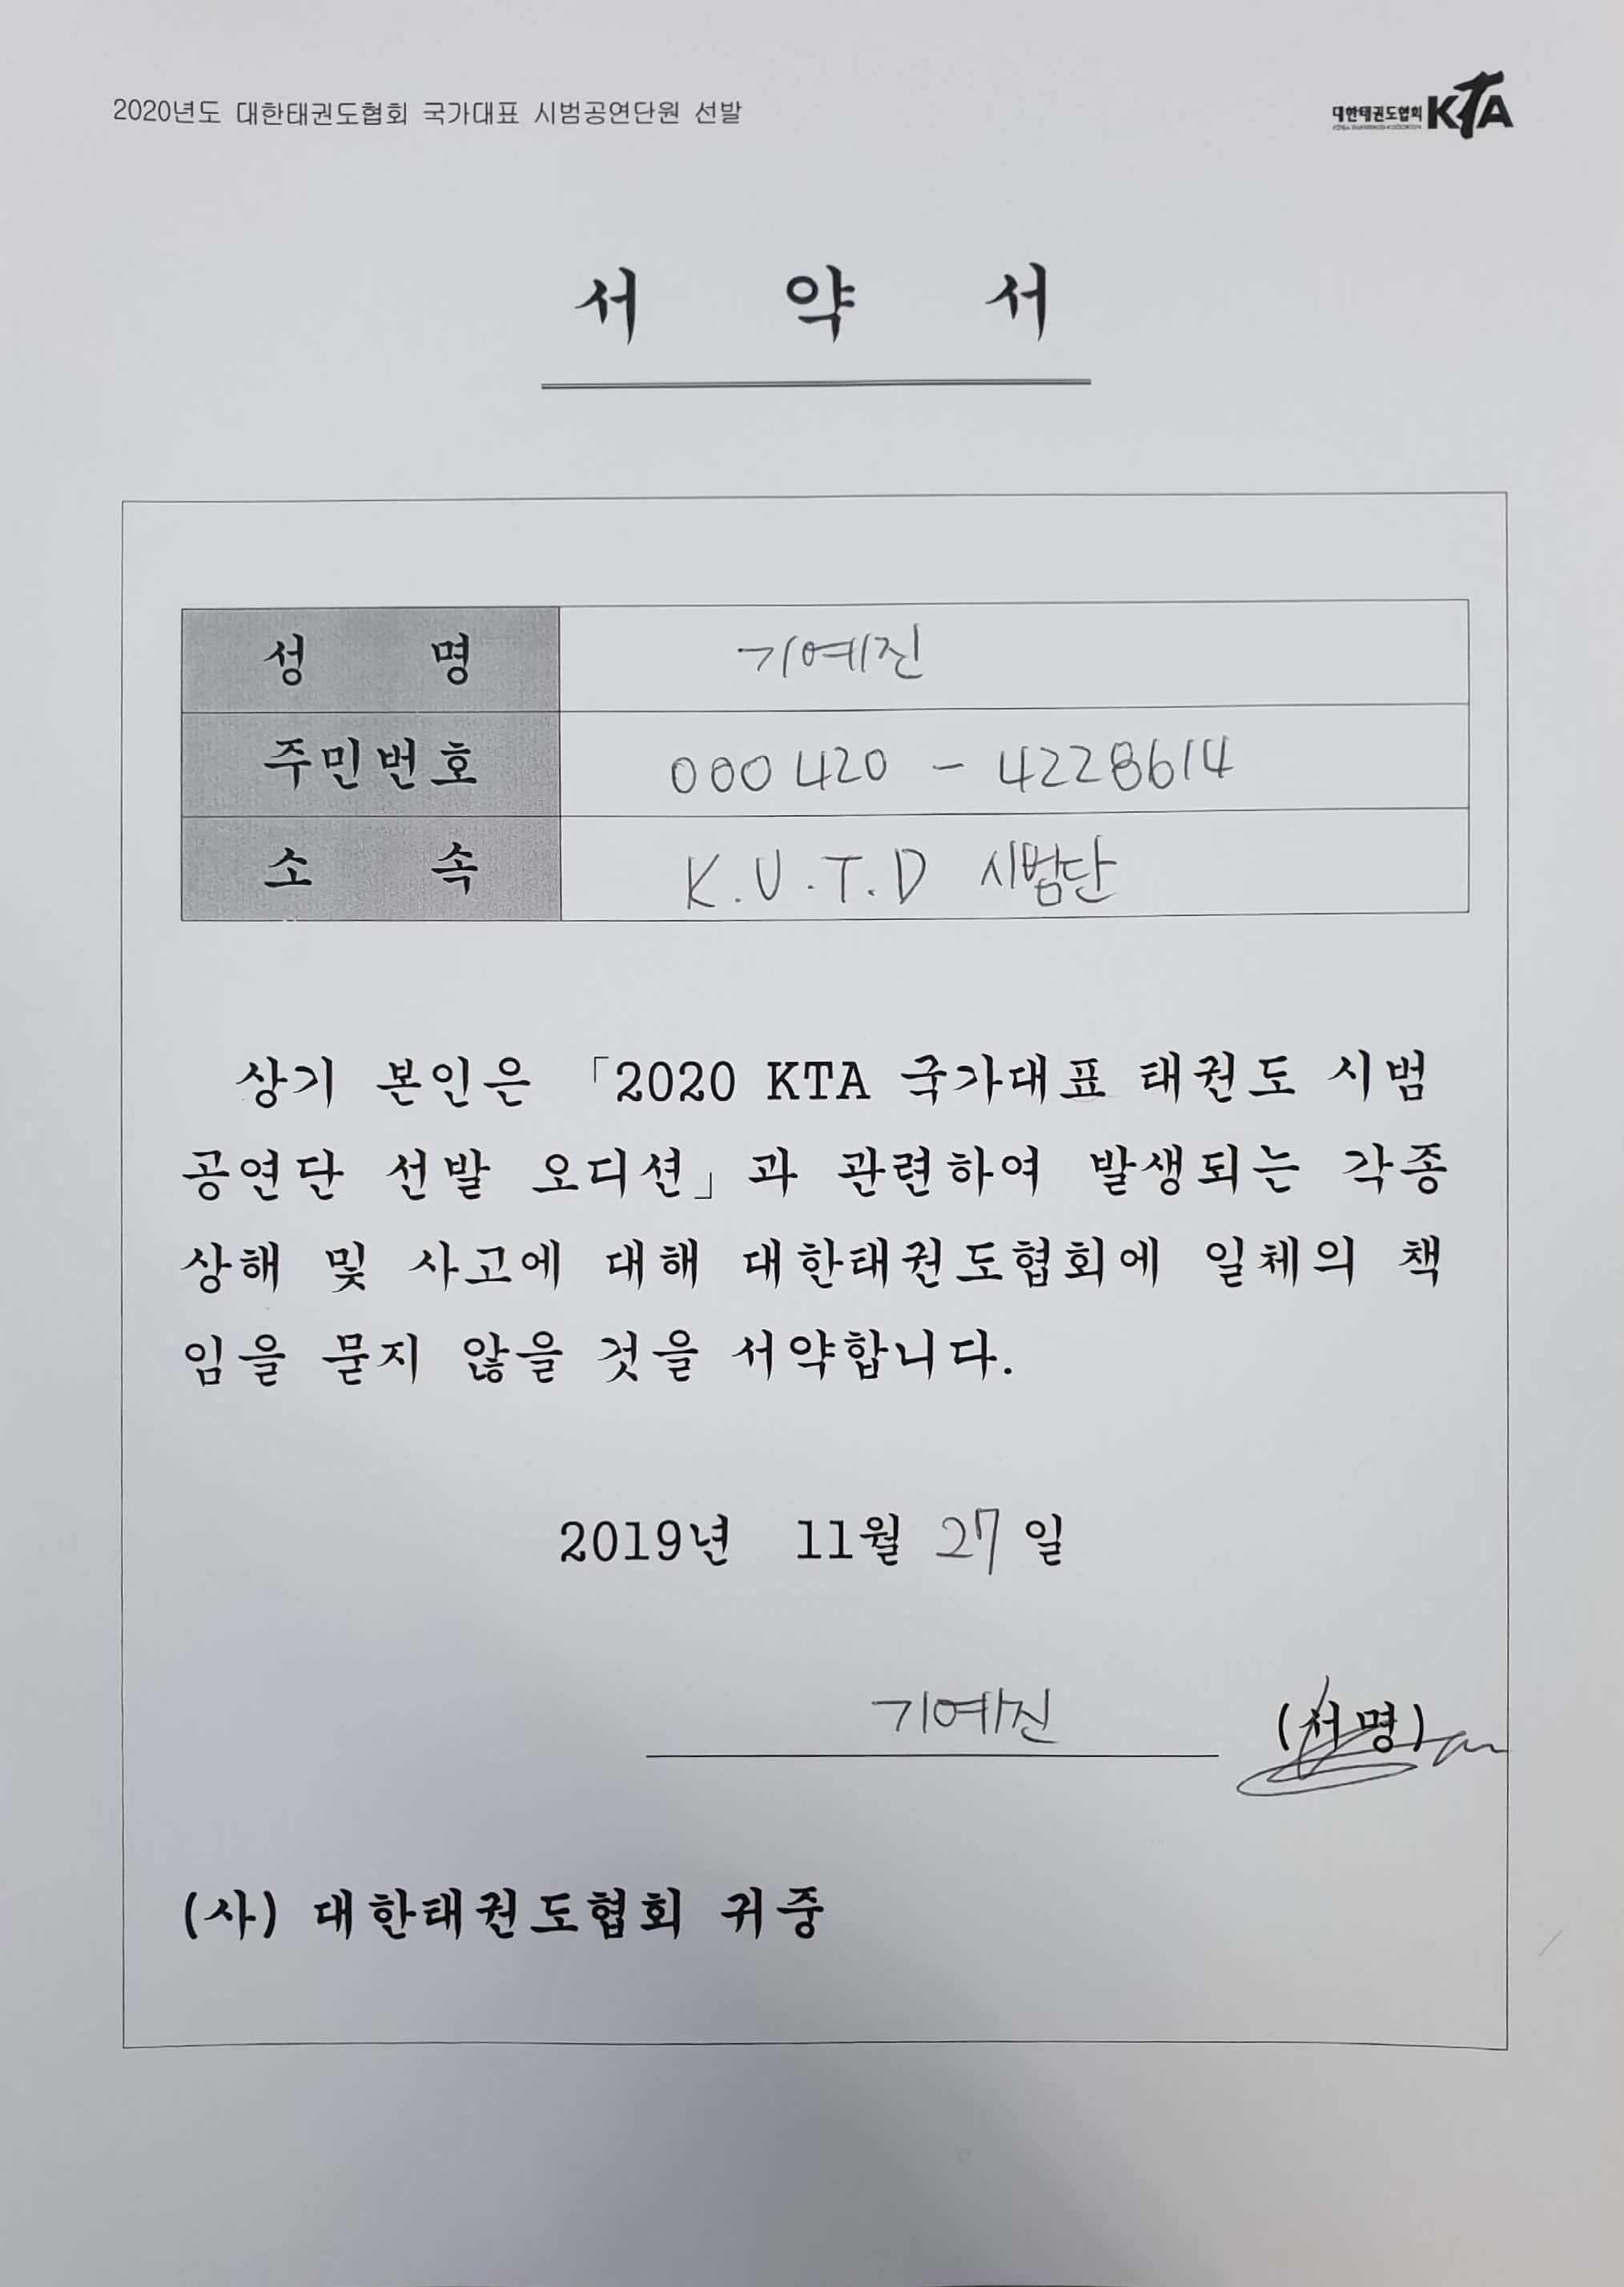 2020년도 대한태권도협회 국가대표 시범공연단원 선발
대한태권도협회 KTA
서 약 서
성 명 기예진
주민번호 000420 - 4228614
소 속 K.U.T.D 시범단
상기 본인은 「2020 KTA 국가대표 태권도 시범
공연단 선발 오디션」과 관련하여 발생되는 각종
상해 및 사고에 대해 대한태권도협회에 일체의 책
임을 묻지 않을 것을 서약합니다.
2019년 11월 27일
기예진 (서명)
(사) 대한태권도협회 귀중